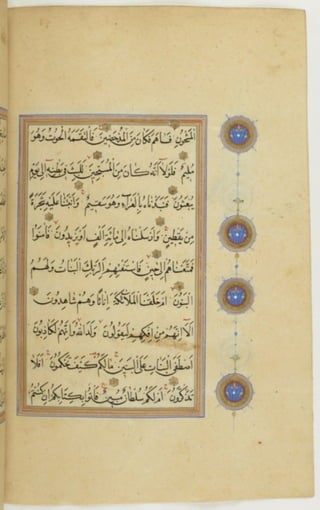 المشحون فساهم فكان من المدحضين فالتقمه الحوت وهو
مليم فلولا أنه كان من المسبحين للبث في بطنه إلى يوم
يبعثون فنبذناه بالعراء وهو سقيم وأنبتنا عليه شجرة
من يقطين وأرسلناه إلى مائة ألف أو يزيدون فآمنوا
فمتعناهم إلى حين فاستفتهم ألربك البنات ولهم
البنون أم خلقنا الملائكة إناثا وهم شاهدون
ألا إنهم من إفكهم ليقولون ولد الله وإنهم لكاذبون
أصطفى البنات على البنين ما لكم كيف تحكمون أفلا
تذكرون أم لكم سلطان مبين فأتوا بكتابكم إن كنتم